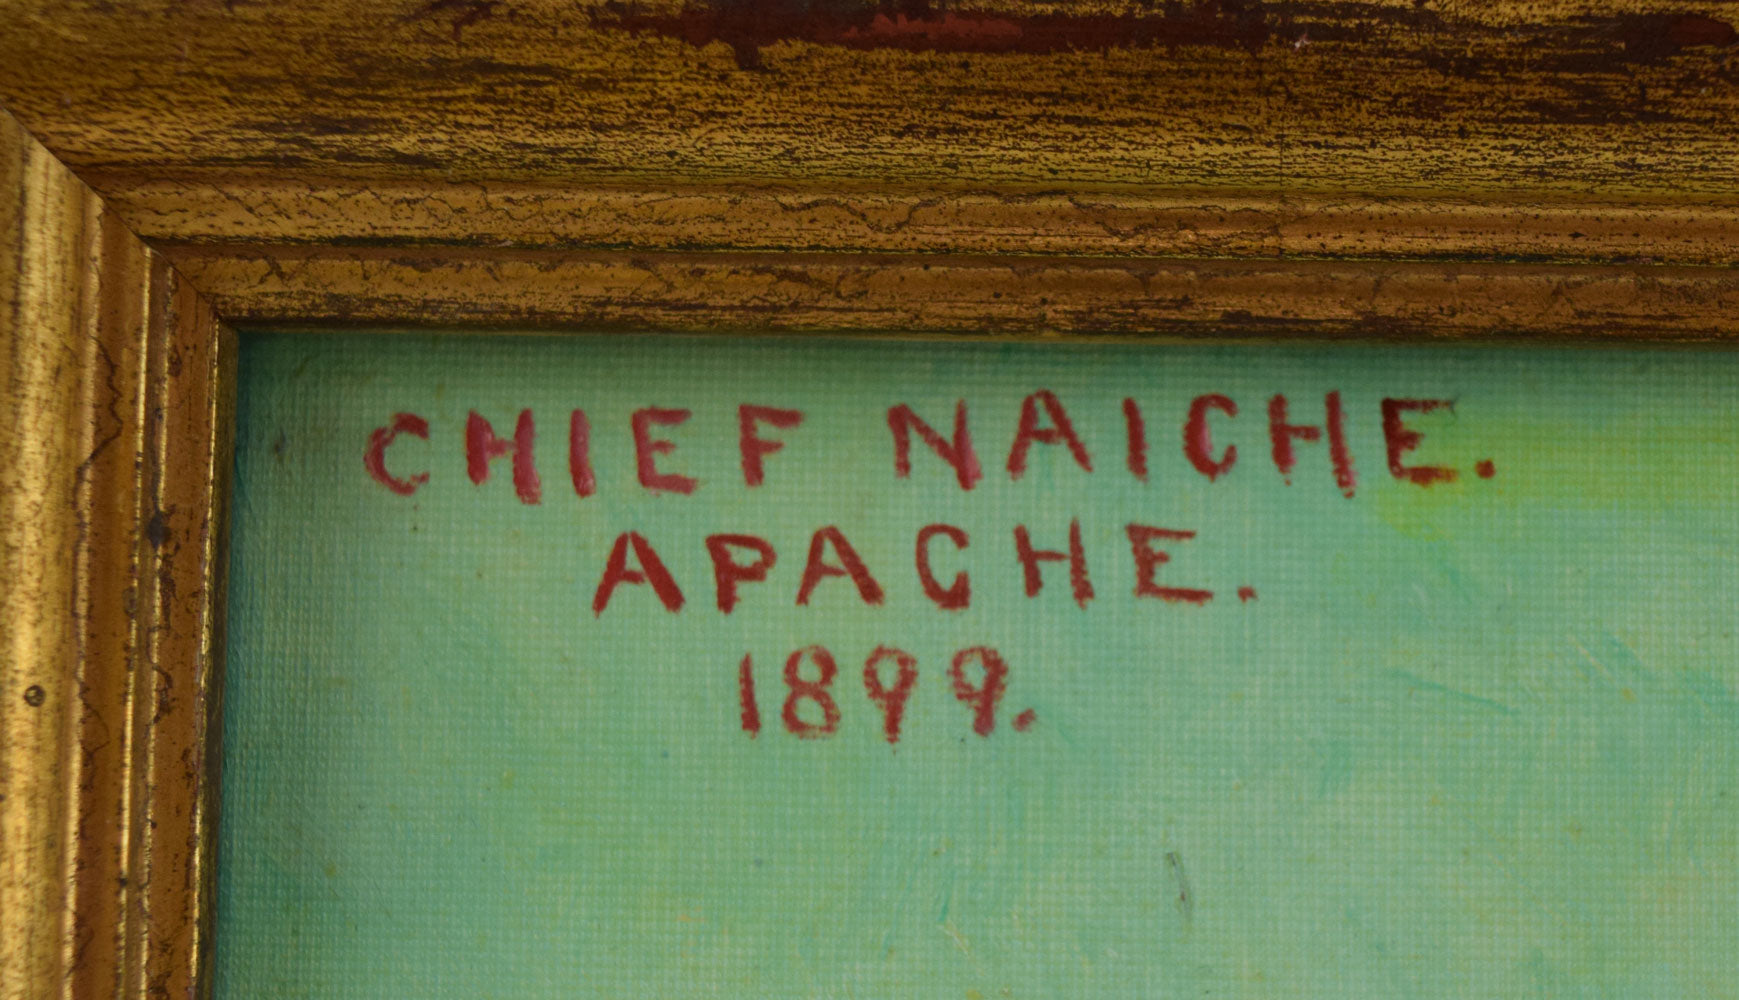 CHIEF NAICHE.
APACHE.
1899.